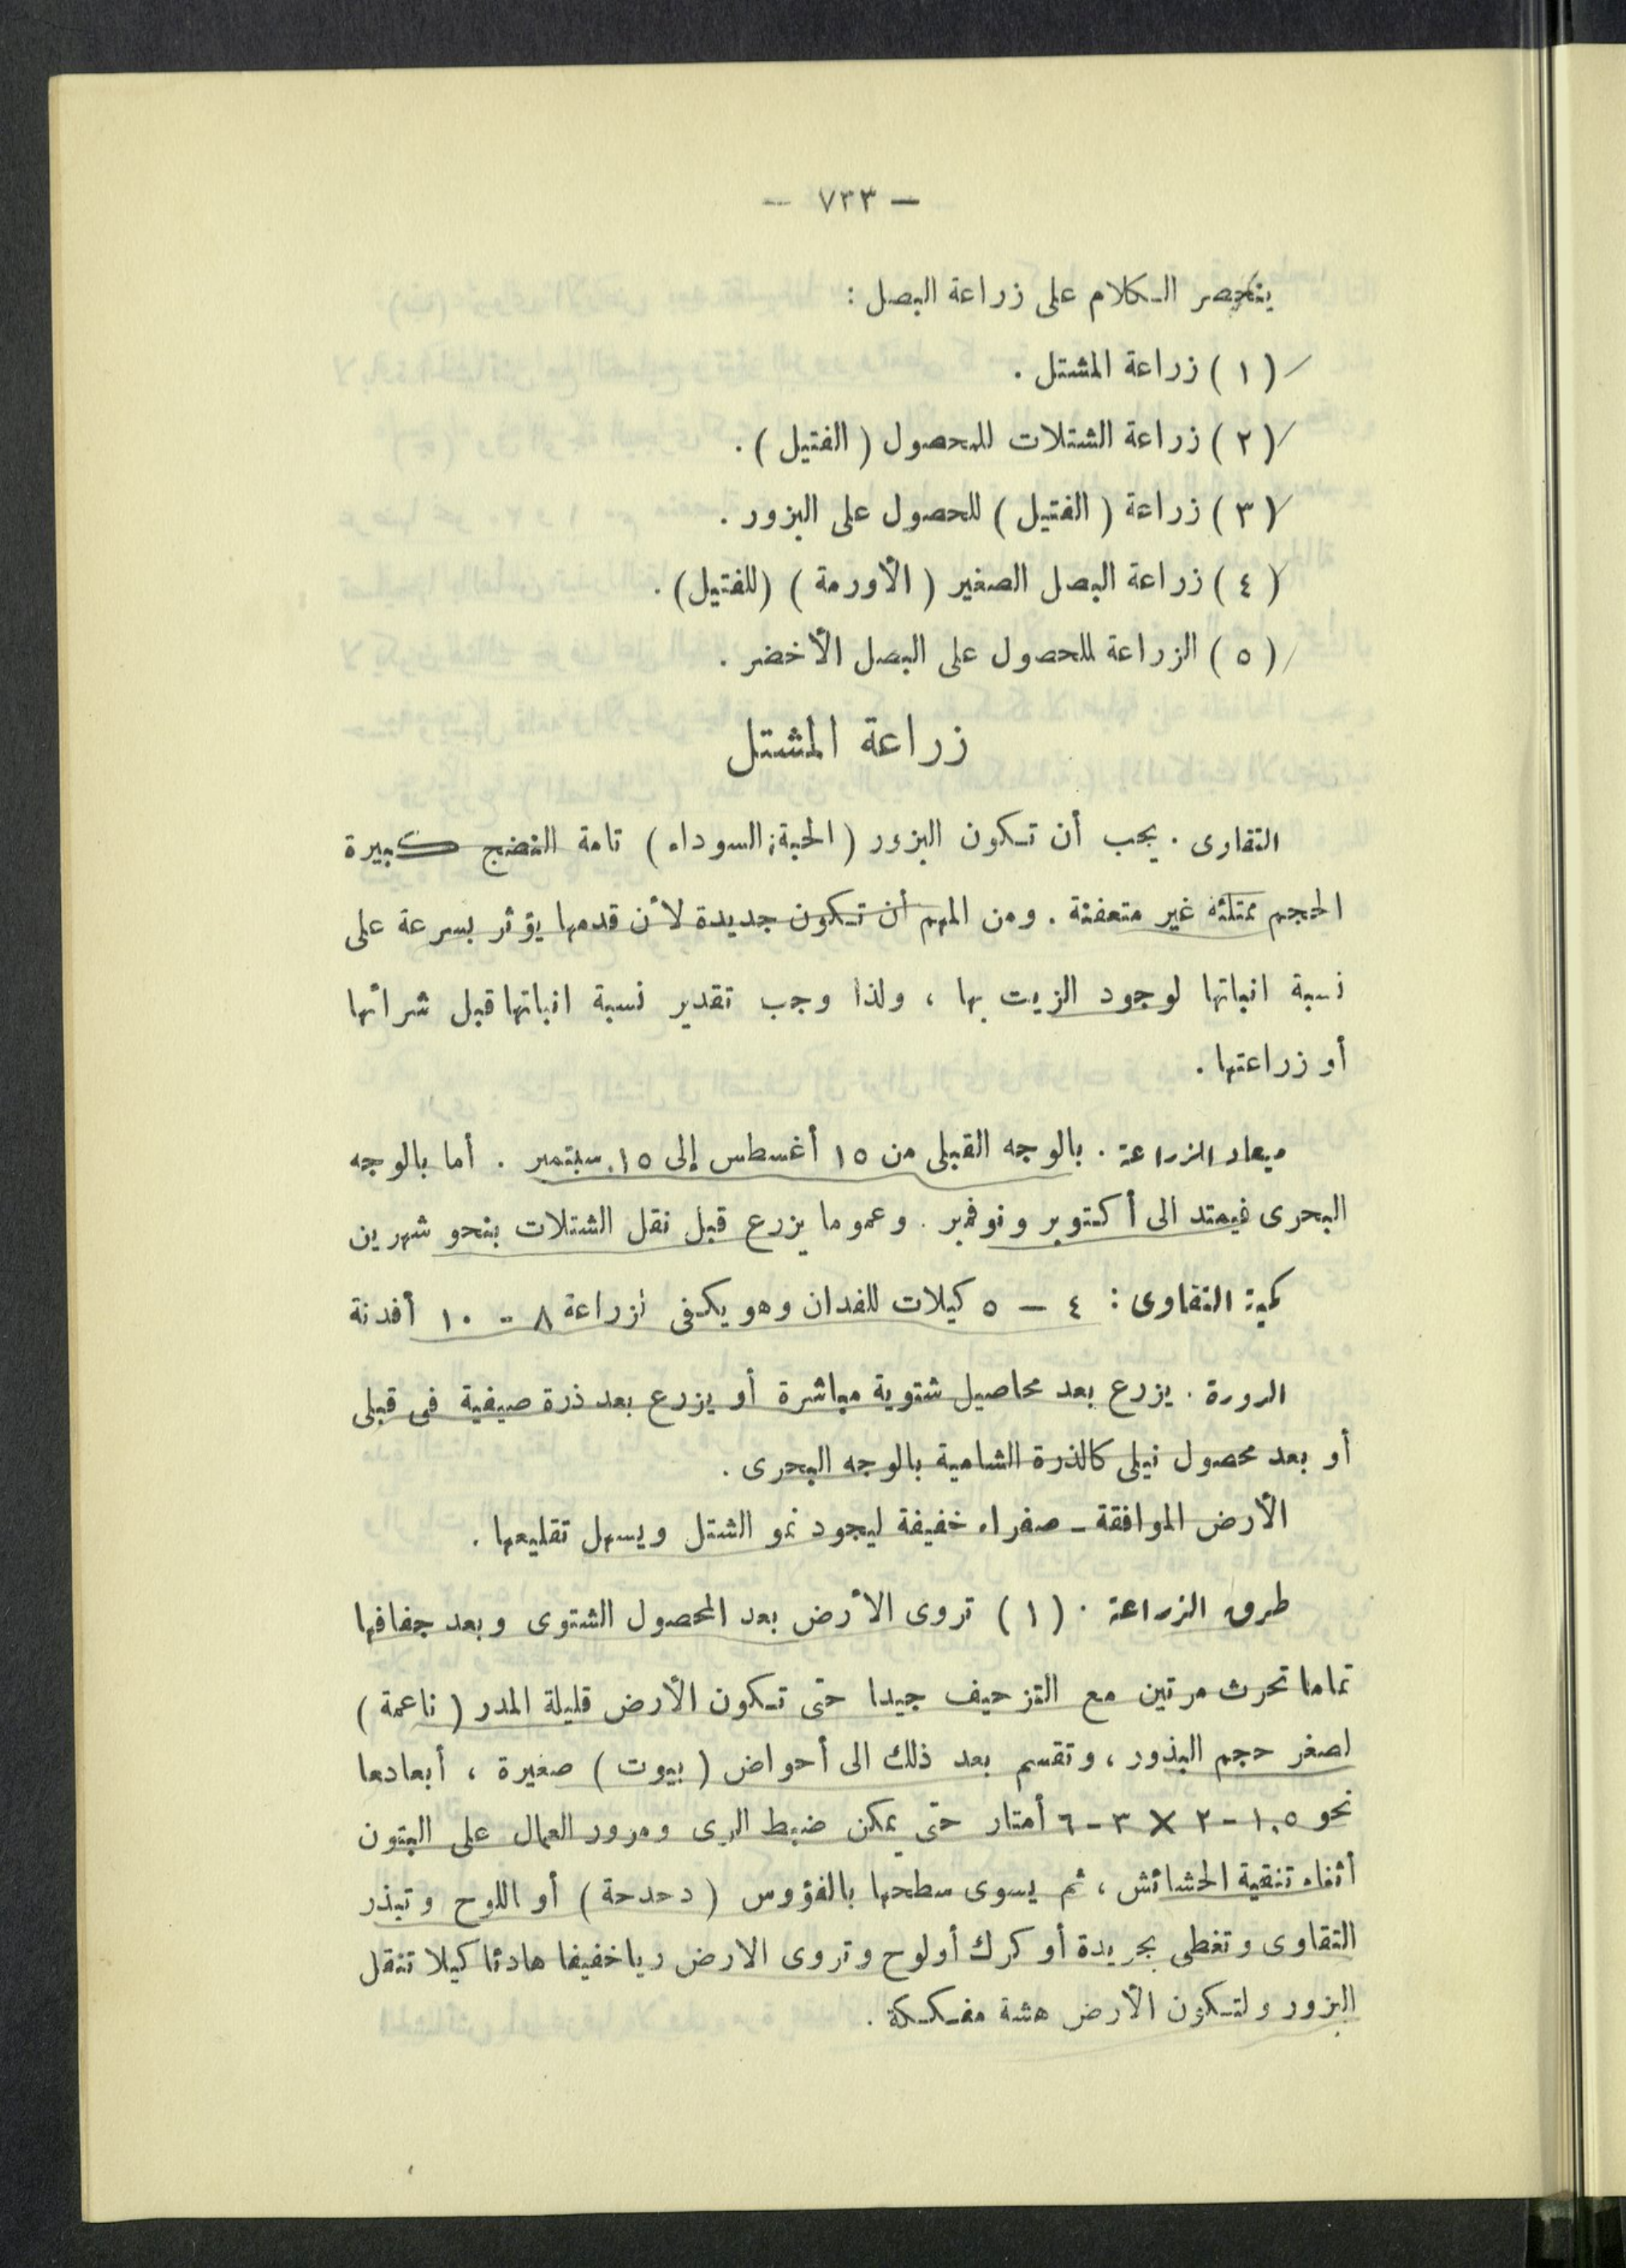 — ٧٣٣ —
ينحصر الكلام على زراعة البصل :
( ١ ) زراعة المشتل .
( ٢ ) زراعة الشتلات للمحصول ( الفتيل ) .
( ٣ ) زراعة ( الفتيل ) للحصول على البزور .
( ٤ ) زراعة البصل الصغير ( الأورمة ) ( للفتيل ) .
( ٥ ) الزراعة للحصول على البصل الأخضر .
زراعة المشتل
التقاوى . يجب أن تكون البزور ( الحبة السوداء ) تامة النضج كبيرة
الحجم ممتلئه غير متعفنة . ومن المهم أن تكون جديدة لأن قدمها يؤثر بسرعة على
نسبة انباتها لوجود الزيت بها ، ولذا وجب تقدير نسبة انباتها قبل شرائها
أو زراعتها .
ميعاد الزراعة . بالوجه القبلى من ١٥ أغسطس إلى ١٥ سبتمبر . أما بالوجه
البحرى فيمتد الى أكتوبر ونوفمبر . وعموما يزرع قبل نقل الشتلات بنحو شهرين
كمية التقاوى : ٤ — ٥ كيلات للفدان وهو يكفى لزراعة ٨ - ١٠ أفدنة
الدورة . يزرع بعد محاصيل شتوية مباشرة أو يزرع بعد ذرة صيفية فى قبلى
أو بعد محصول نيلى كالذرة الشامية بالوجه البحرى .
الأرض الموافقة - صفراء خفيفة ليجود نمو الشتل ويسهل تقليعها .
طرق الزراعة . ( ١ ) تروى الأرض بعد المحصول الشتوى وبعد جفافها
تماما تحرث مرتين مع التزحيف جيدا حتى تكون الأرض قليلة المدر ( ناعمة )
لصغر حجم البذور ، وتقسم بعد ذلك الى أحواض ( بيوت ) صغيرة ، أبعادها
نحو ١.٥ - ٢ × ٣ - ٦ أمتار حتى يمكن ضبط الرى ومرور العمال على البتون
أثناء تنقية الحشائش ، ثم يسوى سطحها بالفؤوس ( دحدحة ) أو اللوح وتبذر
التقاوى وتغطى بجريدة أو كرك أولوح وتروى الارض ريا خفيفا هادئا كيلا تنقل
البزور ولتكون الأرض هشة مفككة .